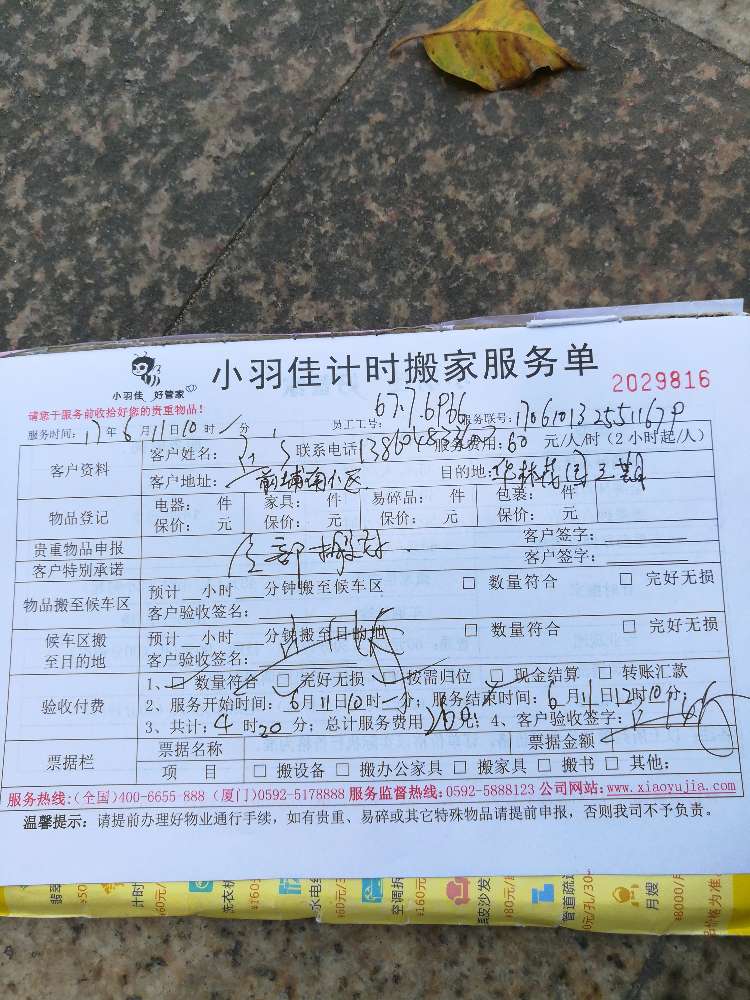 小羽佳 好管家
小羽佳计时搬家服务单
2029816
请您于服务前收拾好您的贵重物品!
服务时间: 17年6月11日10时 分 员工工号: 服务联号:
客户资料
客户姓名: 联系电话 服务费用:60 元/人/时(2小时起/人)
客户地址: 前埔南小区 目的地:
物品登记
电器: 件 家具: 件 易碎品: 件 包裹: 件
保价: 元 保价: 元 保价: 元 保价: 元
贵重物品申报 客户签字:
客户特别承诺 客户签字:
全部搬
物品搬至候车区
预计 小时 分钟搬至候车区 □ 数量符合 □ 完好无损
客户验收签名:
候车区搬至目的地
预计 小时 分钟搬至目的地 □ 数量符合 □ 完好无损
客户验收签名:
验收付费
1、□ 数量符合 □ 完好无损 □ 按需归位 □ 现金结算 □ 转账汇款
2、服务开始时间: 6月11日10时 分; 服务结束时间: 6月11日12时10分;
3、共计: 4时20分; 总计服务费用260元; 4、客户验收签字:
票据栏
票据名称 票据金额
项 目 □ 搬设备 □ 搬办公家具 □ 搬家具 □ 搬书 □ 其他:
服务热线:(全国)400-6655-888 (厦门)0592-5178888 服务监督热线:0592-5888123 公司网站:www.xiaoyujia.com
温馨提示: 请提前办理好物业通行手续, 如有贵重、易碎或其它特殊物品请提前申报, 否则我司不予负责。
计时
洗衣机
水电
空调拆
皮沙发
管道疏通
月嫂